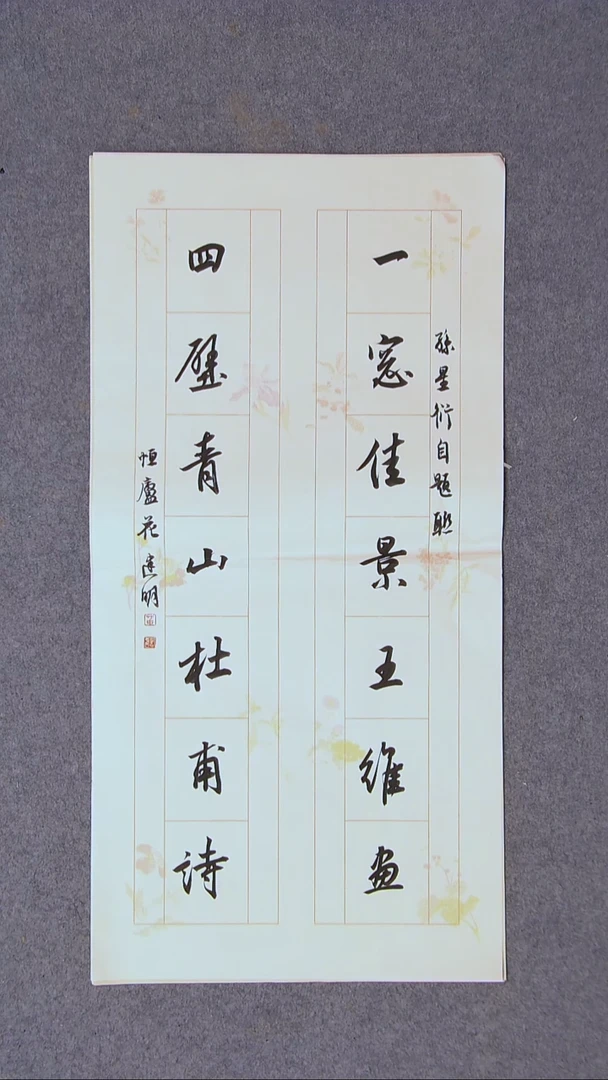 孫星衍自題聯
一窓佳景王維畫
四壁青山杜甫詩
恒廬花建明